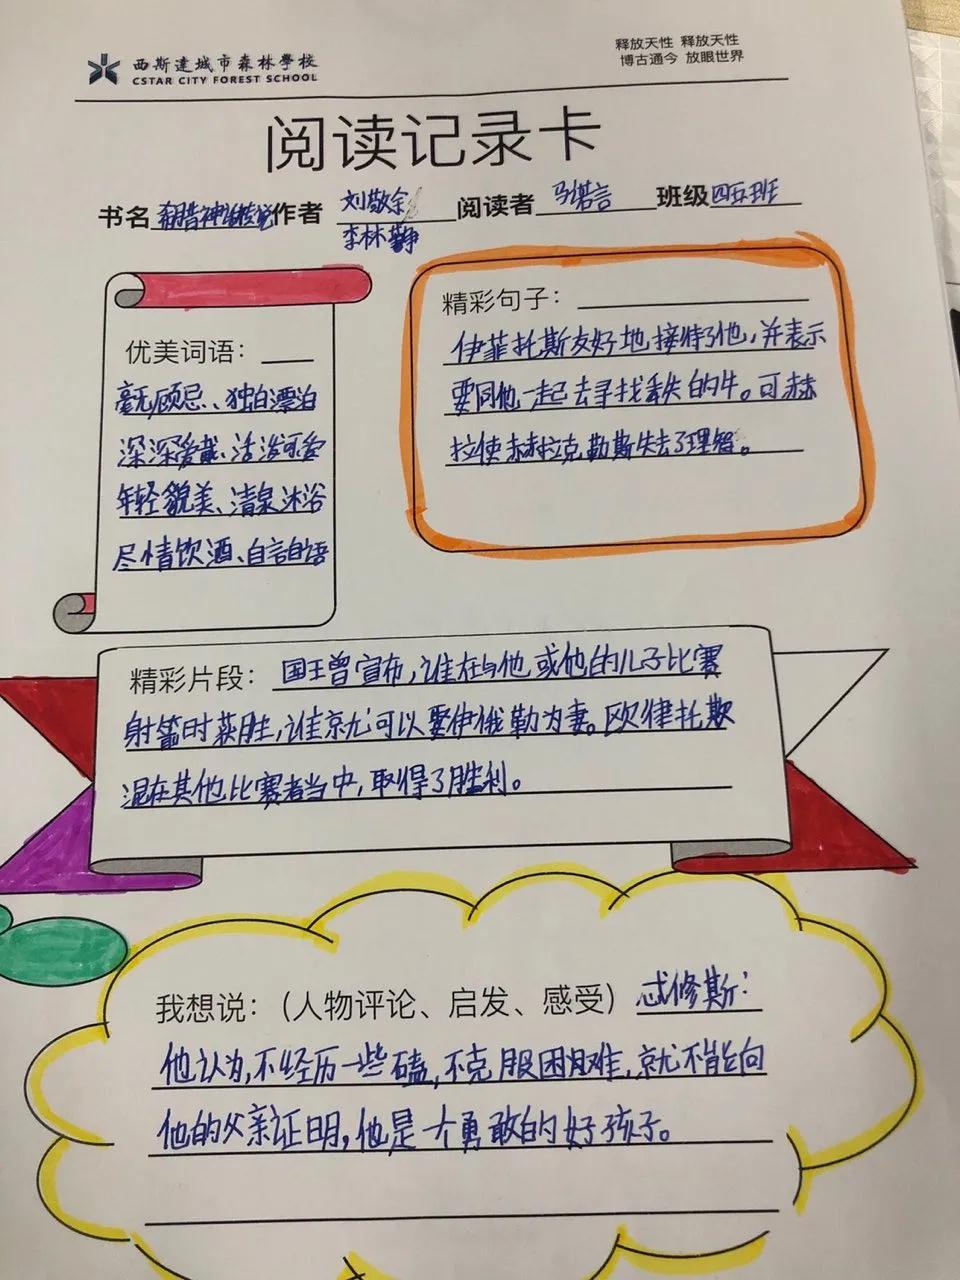 西斯達城市森林學校
CSTAR CITY FOREST SCHOOL
释放天性 释放天性
博古通今 放眼世界
阅读记录卡
书名 希腊神话传说 作者 刘敬余 阅读者 马偌言 班级 四五班
李林静
优美词语：
毫无顾忌、独自漂泊
深深爱戴、活泼可爱
年轻貌美、清泉沐浴
尽情饮酒、自言自语
精彩句子：
伊菲托斯友好地接待了他，并表示
要同他一起去寻找丢失的牛。可赫
拉使赫拉克勒斯失去了理智。
精彩片段： 国王曾宣布，谁在与他或他的儿子比赛
射箭时获胜，谁就可以娶伊俄勒为妻。欧律托斯
混在其他比赛者当中，取得了胜利。
我想说：（人物评论、启发、感受） 忒修斯：
他认为，不经历一些磕，不克服困难，就不能向
他的父亲证明，他是一个勇敢的好孩子。